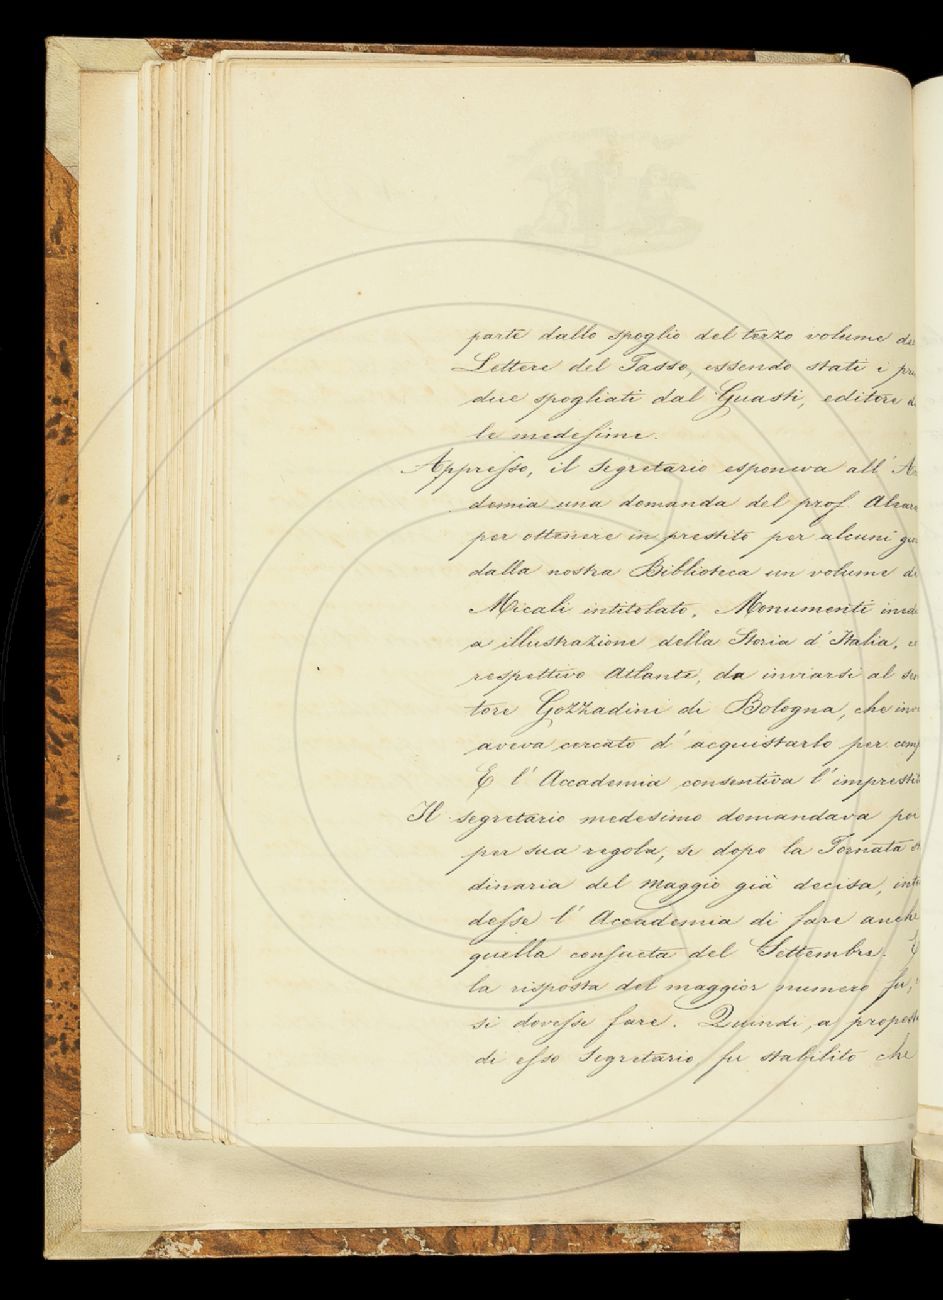 parte dallo spoglio del terzo volume de
Lettere del Tasso, essendo stati i pri
due spogliati dal Guasti, editore d
le medesime.
Appresso, il Segretario esponeva all' A
demia una demanda del prof.
per ottenere in prestito per alcuni
dalla nostra Biblioteca un volume d
Micali intitolato, Monumenti ined
a illustrazione della Storia d' Italia,
respettivo Atlante, da inviarsi al se
tore Gozzadini di Bologna, che
aveva cercato d' acquistarlo per
E l' Accademia consentiva l' imprestit
Il segretario medesimo domandava poi
per sua regola, se dopo la Tornata
dinaria del Maggio già decisa, inte
desse l' Accademia di fare anche
quella consueta del Settembre. E
la risposta del maggior numero fu,
si dovesse fare. Quindi, a propost
di esso Segretario fu stabilito che